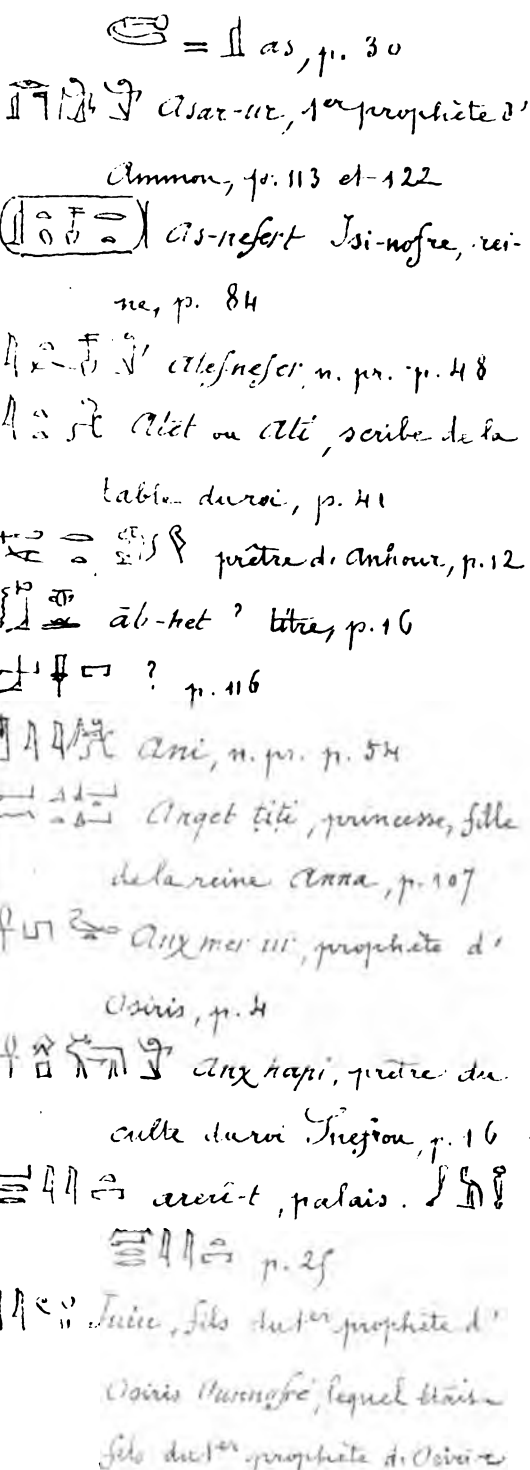 = as, p. 30
Asar-ur, 1er prophète d'
Ammon, p. 113 et 122
As-nefert Isi-nofre, rei-
ne, p. 84
Atefnefer, n. pr. p. 48
Atet ou Ati, scribe de la
table du roi, p. 41
prêtre d. Anhour, p. 12
āb-het ? titre, p. 16
? p. 116
Ani, n. pr. p. 54
Anqet titi, princesse, fille
de la reine Anna, p. 107
Anχ mer ur, prophète d'
Osiris, p. 4
Anχ hapi, prêtre du
culte du roi Snefrou, p. 16
arerî-t, palais.
p. 25
fils du 1er prophète d'
Osiris Ounnofré, lequel était
fils du 1er prophète d'Osiris